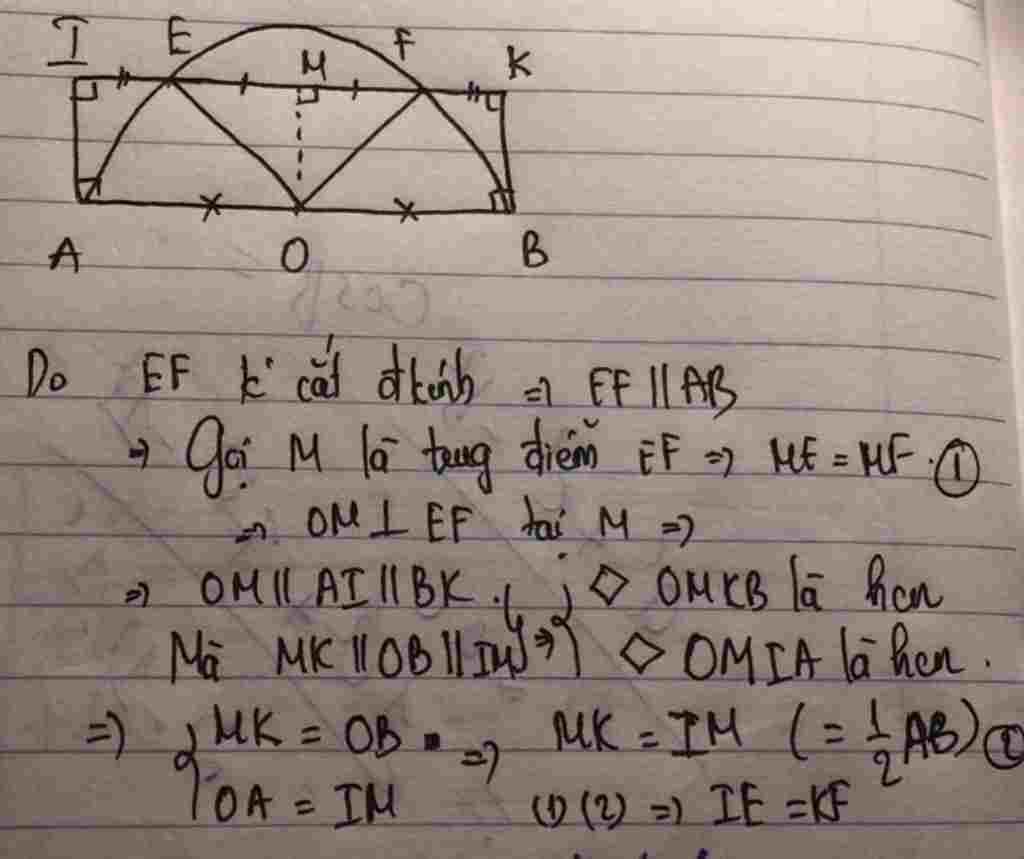 I E M F K
A O B
Do EF k' cắt đkính => EF // AB
=> Gọi M là trung điểm EF => ME = MF. ①
=> OM ⊥ EF tại M =>
=> OM // AI // BK. } ◇ OMKB là hcn
Mà MK // OB // IM => } ◇ OMIA là hcn.
=> { MK = OB => MK = IM (= 1/2 AB) ②
OA = IM (1) (2) => IE = KF